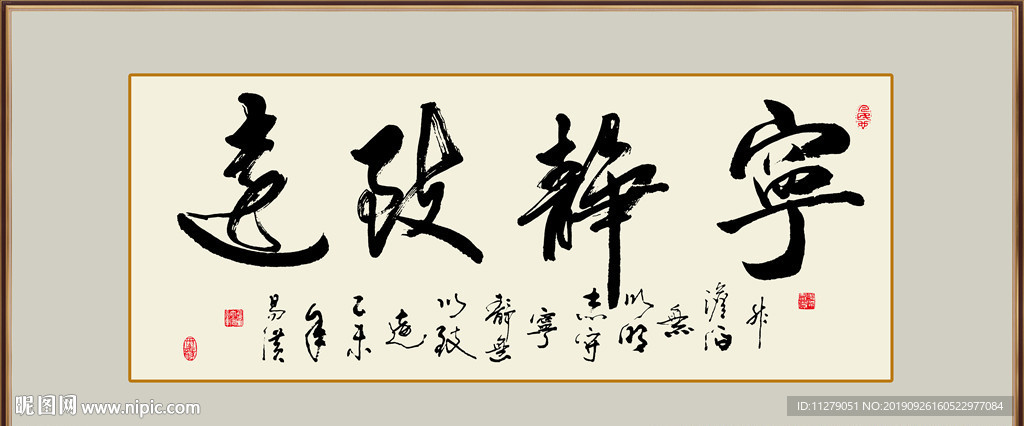 寧靜致遠
非
澹泊
無
以明
志
寧
靜無
以致
遠
乙未
年
易
昵图网 www.nipic.com
ID:11279051 NO:20190926160522977084